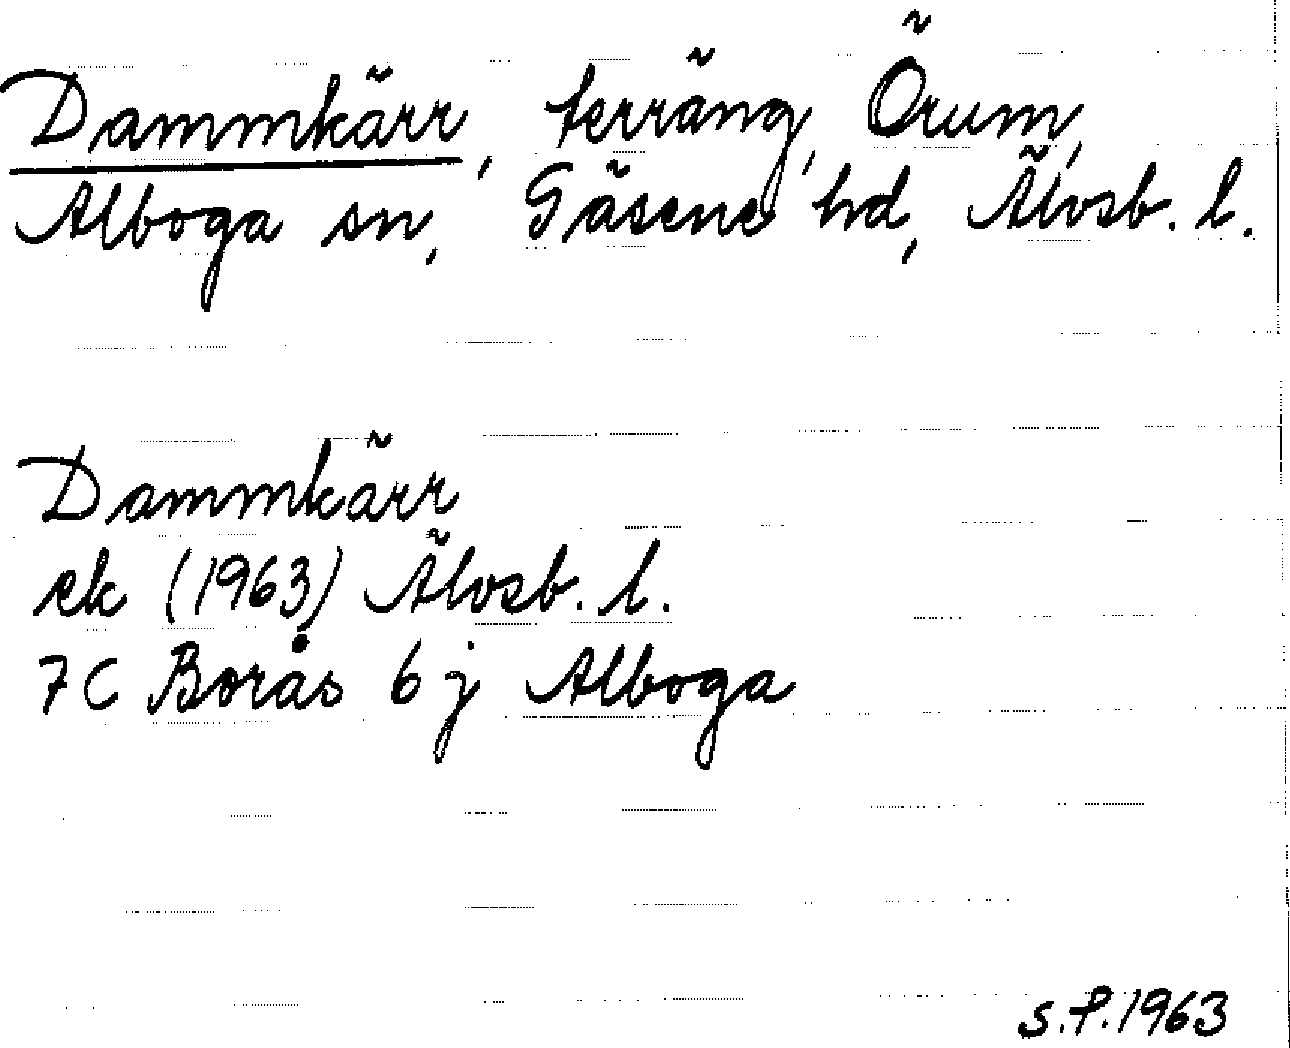 Dammkärr, terräng, Örum,
Alboga sn, Gäsene hd, Älvsb. l.
Dammkärr
ek (1963) Älvsb. l.
7C Borås 6j Alboga
S.P. 1963